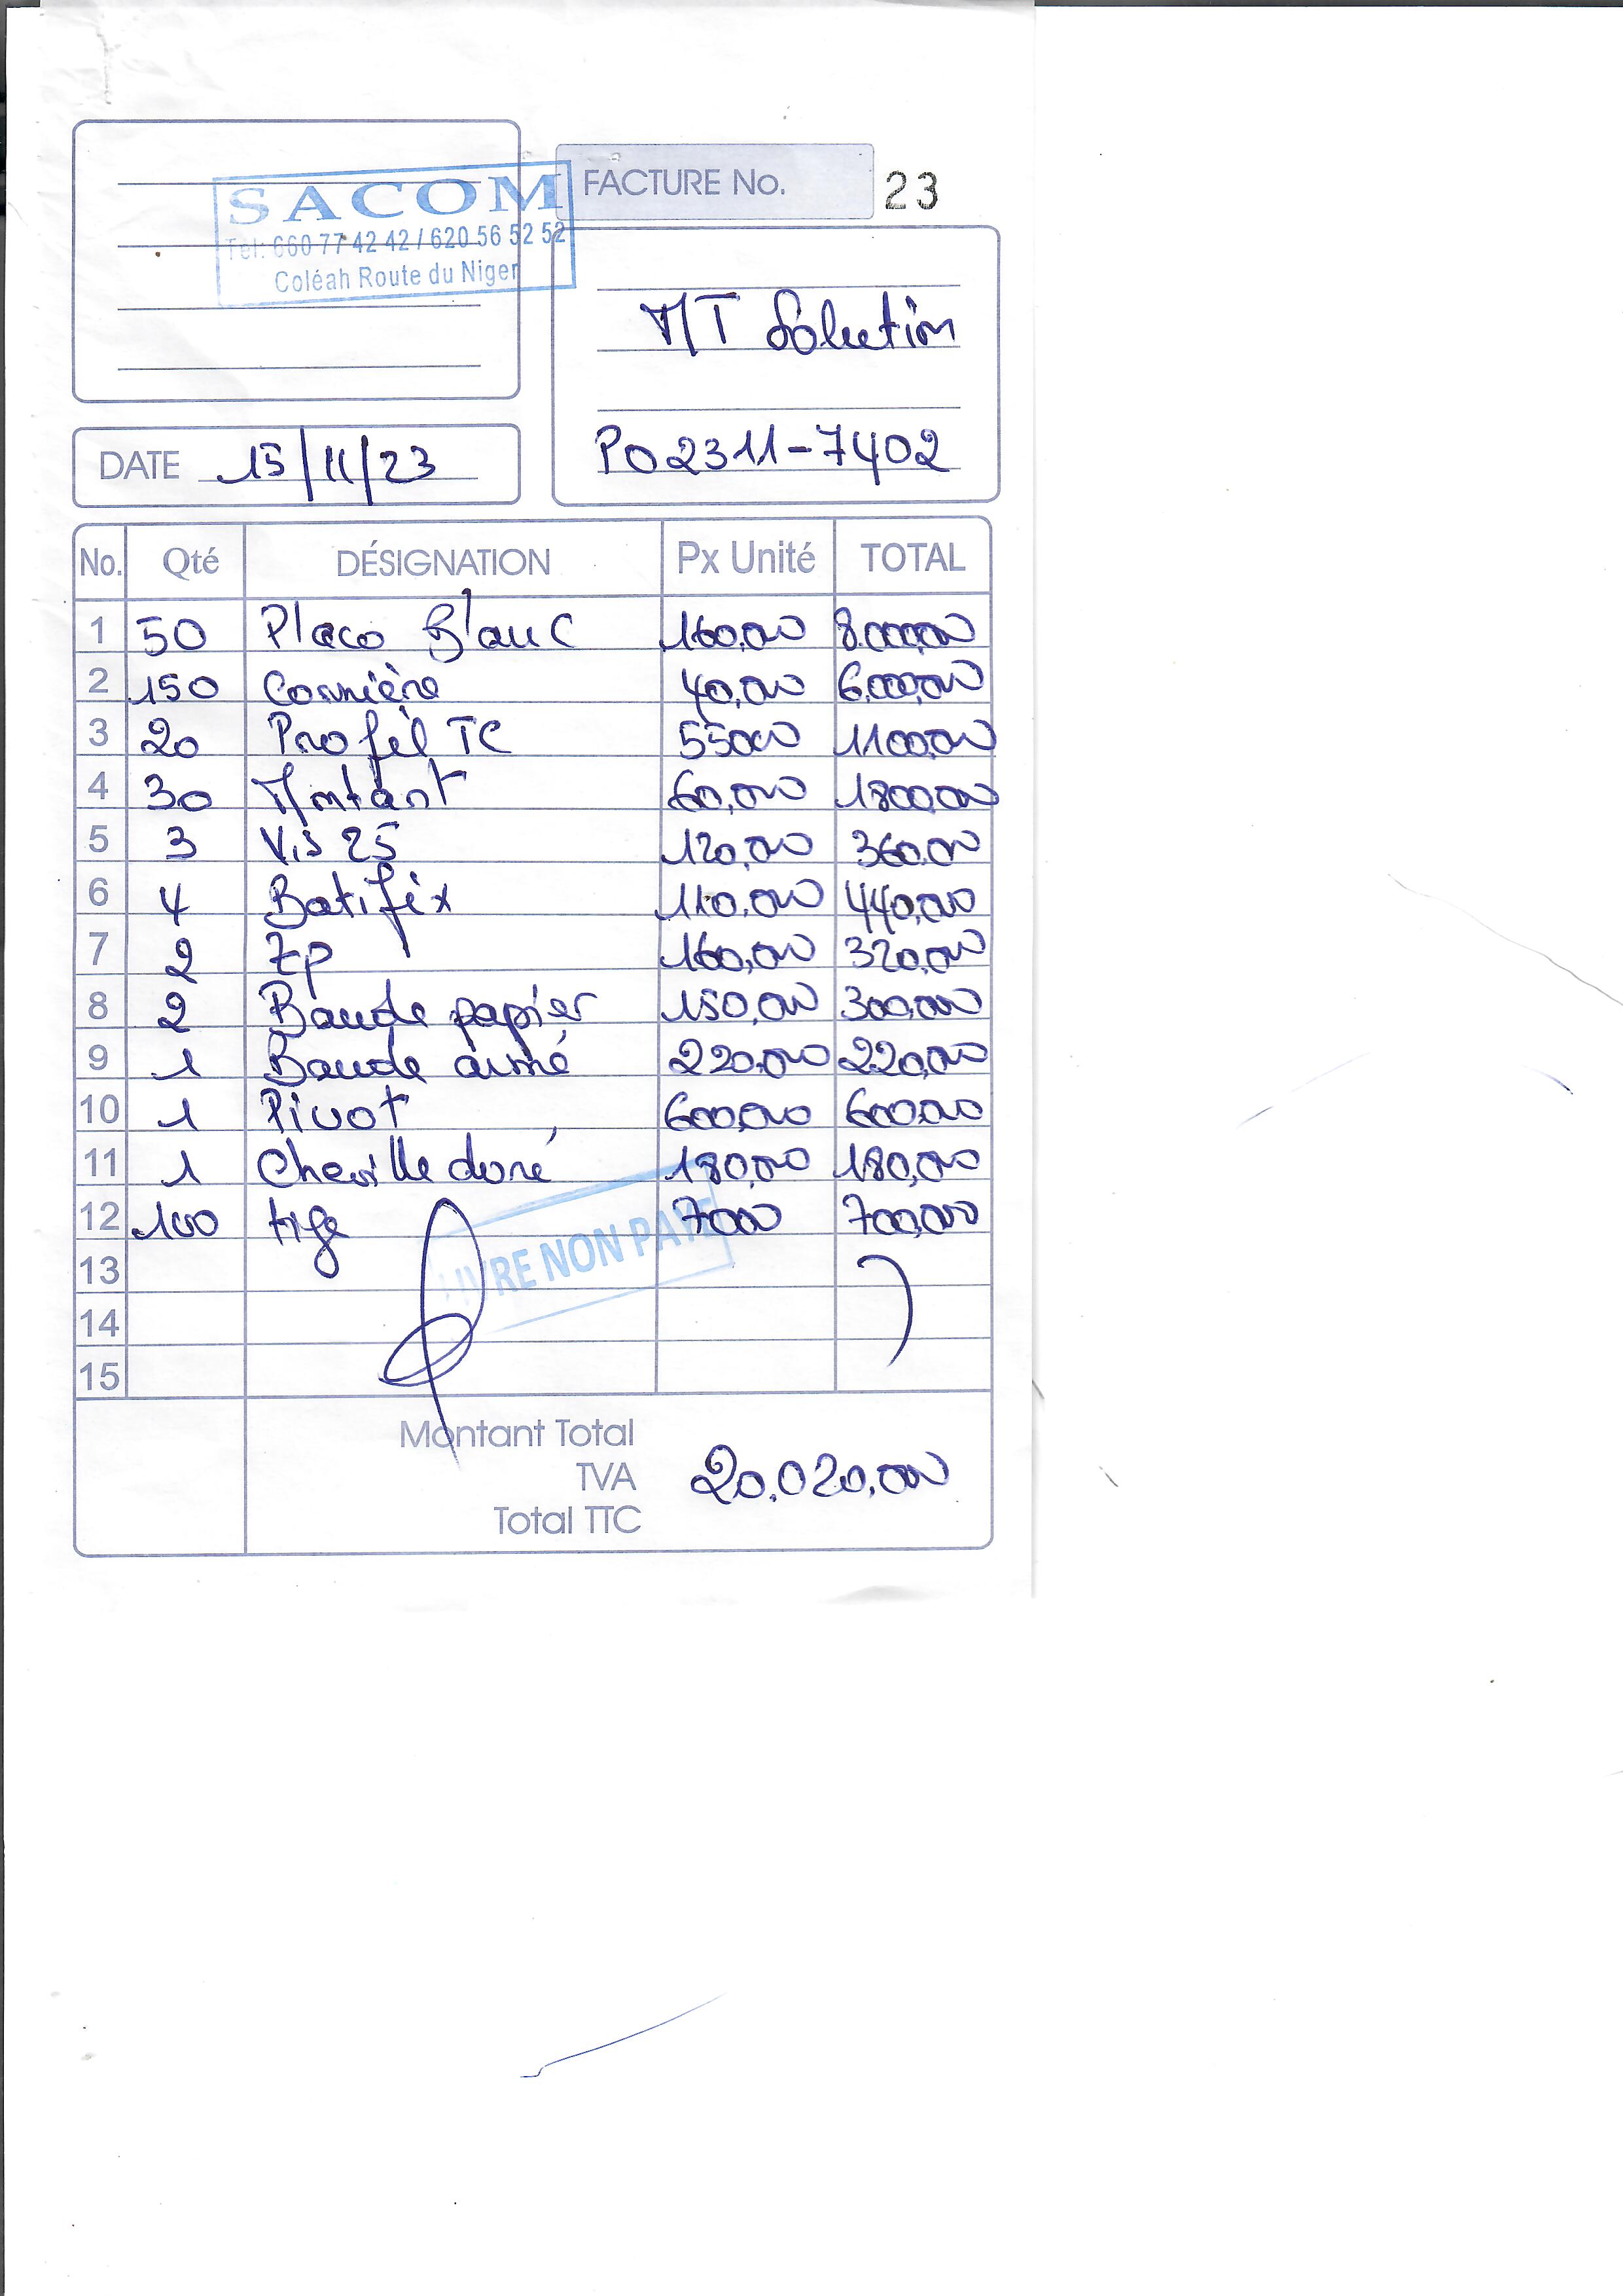 SACOM
Tel: 660 77 42 42 / 620 56 52 52
Coléah Route du Niger
FACTURE No. 23
MT Solution
PO2311-7402
DATE 15/11/23
No. Qté DÉSIGNATION Px Unité TOTAL
1 50 Placo Blanc 160,000 8.000,000
2 150 Cornière 40,000 6.000,000
3 20 Profil TC 55000 1100,000
4 30 Montant 60,000 1800,000
5 3 Vis 25 120,000 360,000
6 4 Batifix 110,000 440,000
7 2 Zp 160,000 320,000
8 2 Bande papier 150,000 300,000
9 1 Bande armé 220,000 220,000
10 1 Pivot 600,000 600,000
11 1 Cheville doré 180,000 180,000
12 100 tige 7000 700,000
LIVRE NON PAYE
13
14
15
Montant Total
TVA 20,020,000
Total TTC